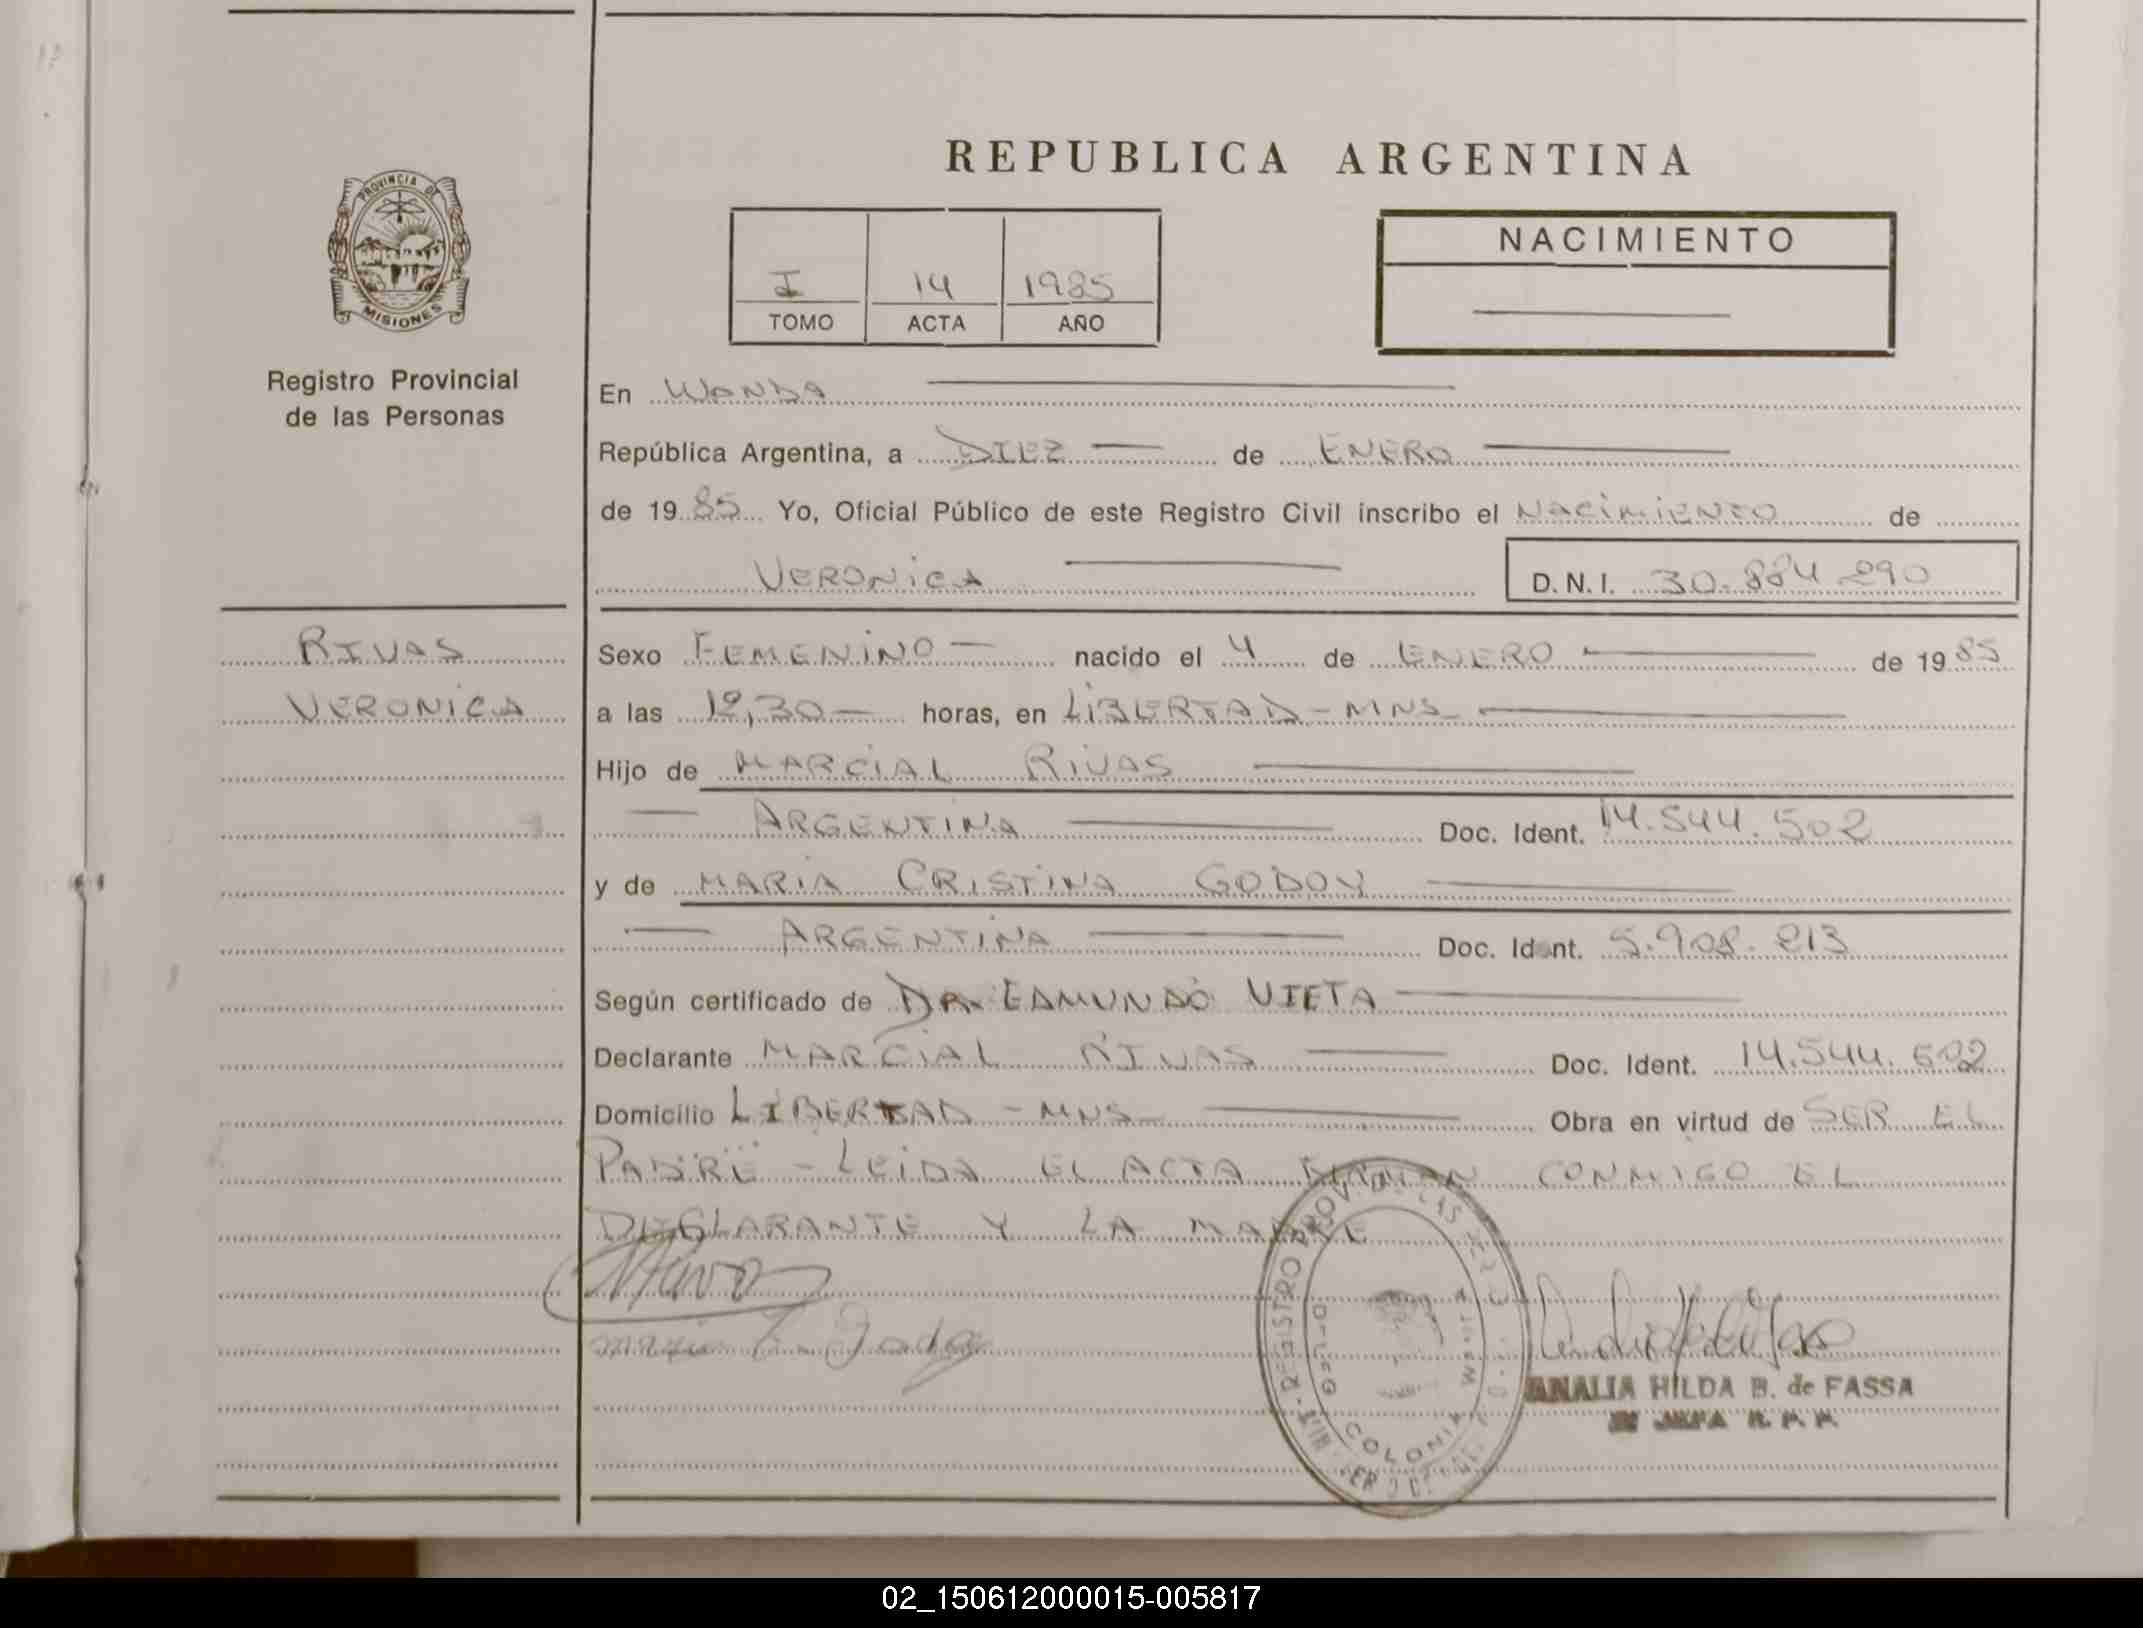 REPUBLICA ARGENTINA
PROVINCIA DE
MISIONES
Registro Provincial
de las Personas
I 14 1985
TOMO ACTA AÑO
NACIMIENTO
En WANDA
República Argentina, a DIEZ de ENERO
de 1985 Yo, Oficial Público de este Registro Civil inscribo el NACIMIENTO de
VERONICA D.N.I. 30.884.290
RIVAS
VERONICA
Sexo FEMENINO nacido el 4 de ENERO de 1985
a las 12,30 horas, en LIBERTAD - MNS
Hijo de MARCIAL RIVAS
ARGENTINA Doc. Ident. 14.544.502
y de MARIA CRISTINA GODOY
ARGENTINA Doc. Ident. 5.908.213
Según certificado de DR. EDMUNDO VIETA
Declarante MARCIAL RIVAS Doc. Ident. 14.544.502
Domicilio LIBERTAD - MNS Obra en virtud de SER EL
PADRE - LEIDA EL ACTA FIRMAN CONMIGO EL
DECLARANTE Y LA MADRE
REGISTRO PROV. DE LAS
COLONIA WANDA
ANALIA HILDA B. de FASSA
JEFA R. P. P.
02_150612000015-005817